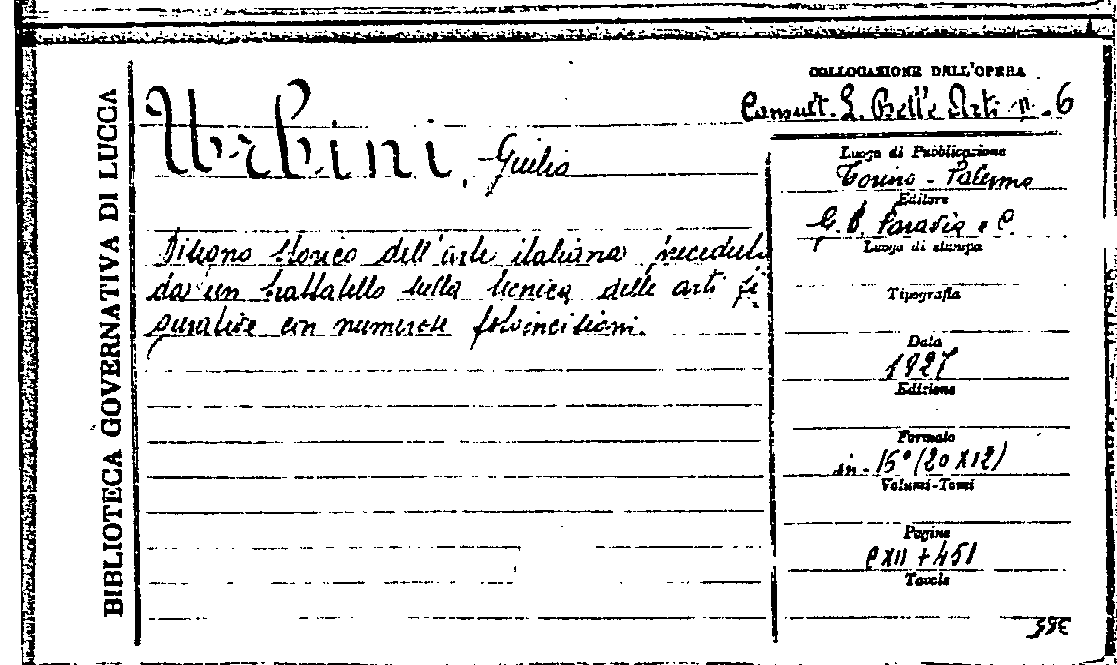 BIBLIOTECA GOVERNATIVA DI LUCCA
COLLOCAZIONE DELL'OPERA
Consult. S. Belle Arti n. 6
Urbini, Giulio
Disegno storico dell'arte italiana preceduto
da un trattatello sulla tecnica delle arti fi
gurative con numerose fotoincisioni.
Luogo di Pubblicazione
Torino - Palermo
Editore
G. B. Paravia e C.
Luogo di stampa
Tipografia
Data
1927
Edizione
Formato
in-15° (20 X 12)
Volumi-Tomi
Pagine
CXII + 451
Tavole